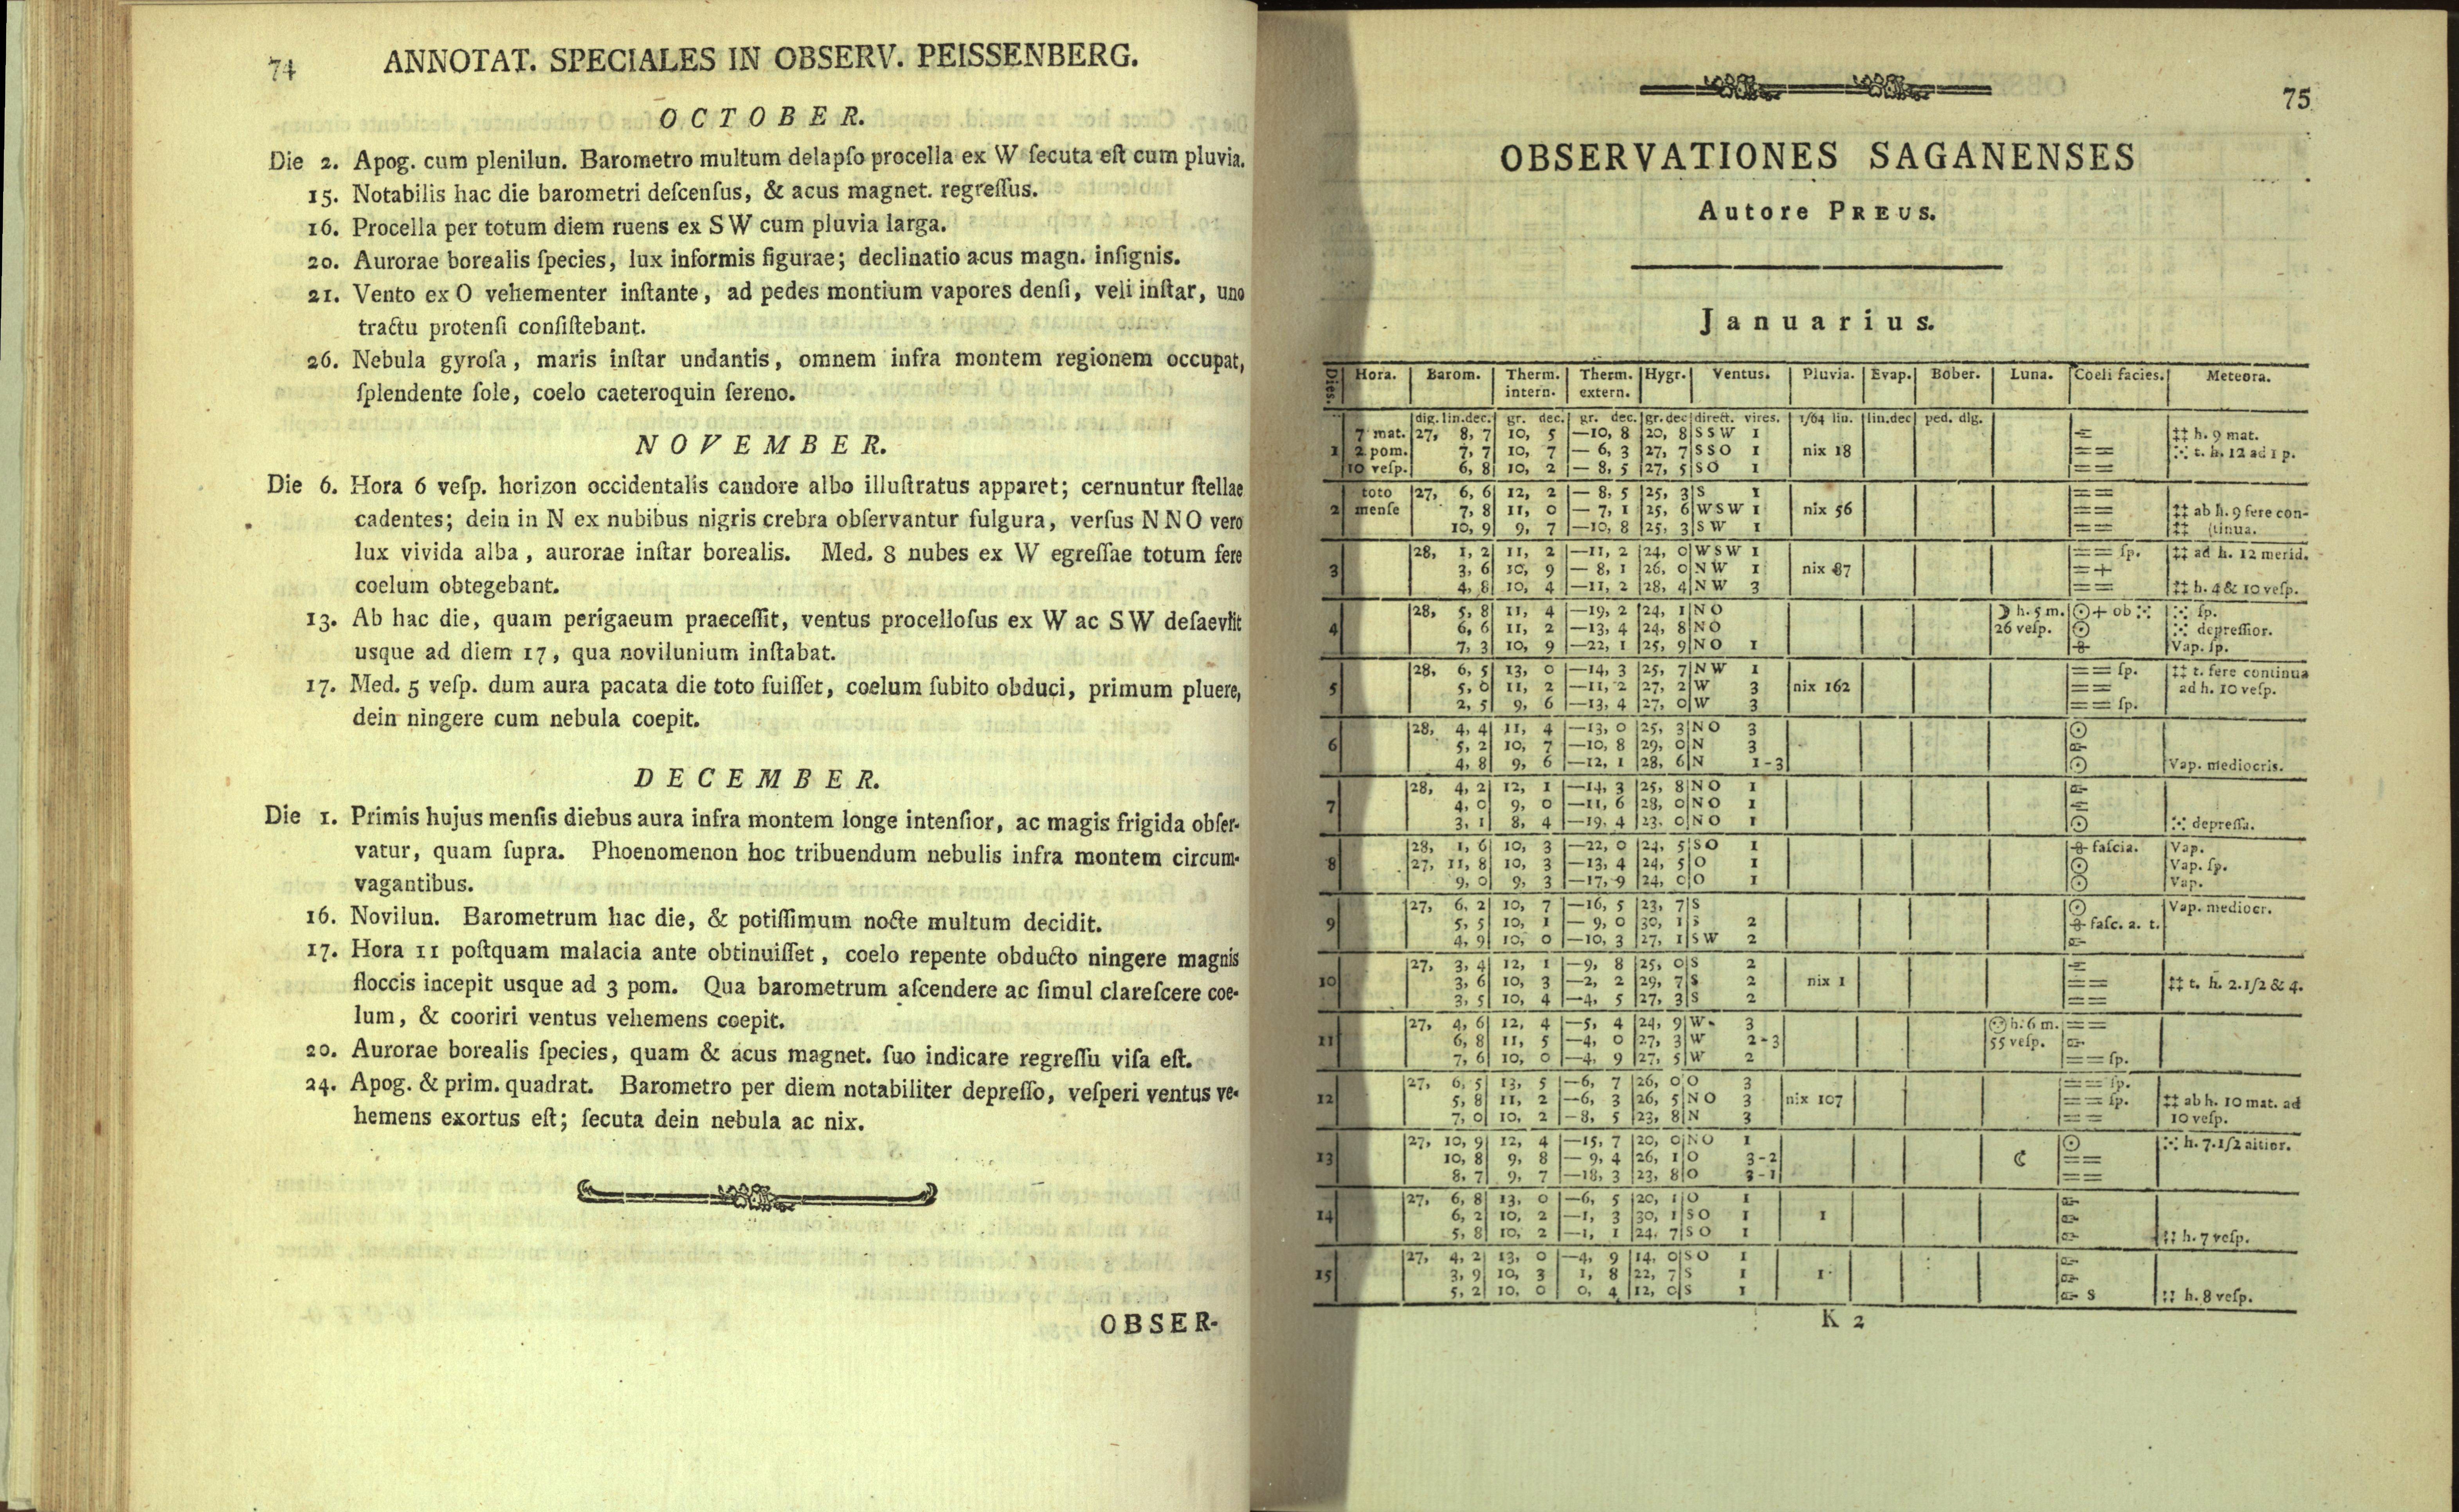 74
ANNOTAT. SPECIALES IN OBSERV. PEISSENBERG.
OCTOBER.
Die 2. Apog. cum plenilun. Barometro multum delapſo procella ex W ſecuta eſt cum pluvia.
15. Notabilis hac die barometri deſcenſus, & acus magnet. regreſſus.
16. Procella per totum diem ruens ex SW cum pluvia larga.
20. Aurorae borealis ſpecies, lux informis figurae; declinatio acus magn. inſignis.
21. Vento ex O vehementer inſtante, ad pedes montium vapores denſi, veli inſtar, uno
tractu protenſi conſiſtebant.
26. Nebula gyroſa, maris inſtar undantis, omnem infra montem regionem occupat,
ſplendente ſole, coelo caeteroquin ſereno.
NOVEMBER.
Die 6. Hora 6 veſp. horizon occidentalis candore albo illuſtratus apparet; cernuntur ſtellae
cadentes; dein in N ex nubibus nigris crebra obſervantur fulgura, verſus NNO vero
lux vivida alba, aurorae inſtar borealis. Med. 8 nubes ex W egreſſae totum fere
coelum obtegebant.
13. Ab hac die, quam perigaeum praeceſſit, ventus procelloſus ex W ac SW deſaeviit
usque ad diem 17, qua novilunium inſtabat.
17. Med. 5 veſp. dum aura pacata die toto fuiſſet, coelum ſubito obduci, primum pluere,
dein ningere cum nebula coepit.
DECEMBER.
Die 1. Primis hujus menſis diebus aura infra montem longe intenſior, ac magis frigida obſer-
vatur, quam ſupra. Phoenomenon hoc tribuendum nebulis infra montem circum-
vagantibus.
16. Novilun. Barometrum hac die, & potiſſimum nocte multum decidit.
17. Hora 11 poſtquam malacia ante obtinuiſſet, coelo repente obducto ningere magnis
floccis incepit usque ad 3 pom. Qua barometrum aſcendere ac ſimul clareſcere coe-
lum, & cooriri ventus vehemens coepit.
20. Aurorae borealis ſpecies, quam & acus magnet. ſuo indicare regreſſu viſa eſt.
24. Apog. & prim. quadrat. Barometro per diem notabiliter depreſſo, veſperi ventus ve-
hemens exortus eſt; ſecuta dein nebula ac nix.
OBSER-
75
OBSERVATIONES SAGANENSES
Autore PREUS.
Januarius.
Dies. Hora. Barom. Therm. intern. Therm. extern. Hygr. Ventus. Pluvia. Evap. Bober. Luna. Coeli facies. Meteora.
dig. lin. dec. gr. dec. gr. dec. gr. dec direct. vires. 1/64 lin. lin. dec ped. dig.
7 mat. 27, 8, 7 10, 5 —10, 8 20, 8 SSW 1 ‡‡ h. 9 mat.
1 2 pom. 7, 7 10, 7 — 6, 3 27, 7 SSO 1 nix 18 == t. h. 12 ad 1 p.
10 veſp. 6, 8 10, 2 — 8, 5 27, 5 SO 1 ==
toto 27, 6, 6 12, 2 — 8, 5 25, 3 S 1 ==
2 menſe 7, 8 11, 0 — 7, 1 25, 6 WSW 1 nix 56 == ‡‡ ab h. 9 fere con-
10, 9 9, 7 —10, 8 25, 3 SW 1 == ‡‡ (tinua.
28, 1, 2 11, 2 —11, 2 24, 0 WSW 1 == ſp. ‡‡ ad h. 12 merid.
3 3, 6 10, 9 — 8, 1 26, 0 NW 1 nix 87 =+
4, 8 10, 4 —11, 2 28, 4 NW 3 == ‡‡ h. 4 & 10 veſp.
28, 5, 8 11, 4 —19, 2 24, 1 NO ☽ h. 5 m. ☉+ ob ⁙ ⁙ ſp.
4 6, 6 11, 2 —13, 4 24, 8 NO 26 veſp. ☉ ⁙ depreſſior.
7, 3 10, 9 —22, 1 25, 9 NO 1 Vap. ſp.
28, 6, 5 13, 0 —14, 3 25, 7 NW 1 == ſp. ‡‡ t. fere continua
5 5, 0 11, 2 —11, 2 27, 2 W 3 nix 162 == ad h. 10 veſp.
2, 5 9, 6 —13, 4 27, 0 W 3 == ſp.
28, 4, 4 11, 4 —13, 0 25, 3 NO 3 ☉
6 5, 2 10, 7 —10, 8 29, 0 N 3
4, 8 9, 6 —12, 1 28, 6 N 1-3 ☉ Vap. mediocris.
28, 4, 2 12, 1 —14, 3 25, 8 NO 1
7 4, 0 9, 0 —11, 6 28, 0 NO 1
3, 1 8, 4 —19, 4 23, 0 NO 1 ☉ ⁙ depreſſa.
28, 1, 6 10, 3 —22, 0 24, 5 SO 1 faſcia. Vap.
8 27, 11, 8 10, 3 —13, 4 24, 5 O 1 ☉ Vap. ſp.
9, 0 9, 3 —17, 9 24, 0 O 1 ☉ Vap.
27, 6, 2 10, 7 —16, 5 23, 7 S ☉ Vap. mediocr.
9 5, 5 10, 1 — 9, 0 30, 1 S 2 faſc. a. t.
4, 9 10, 0 —10, 3 27, 1 SW 2
27, 3, 4 12, 1 —9, 8 25, 0 S 2
10 3, 6 10, 3 —2, 2 29, 7 S 2 nix 1 == ‡‡ t. h. 2.1/2 & 4.
3, 5 10, 4 —4, 5 27, 3 S 2 ==
27, 4, 6 12, 4 —5, 4 24, 9 W 3 h. 6 m. ==
11 6, 8 11, 5 —4, 0 27, 3 W 2-3 55 veſp.
7, 6 10, 0 —4, 9 27, 5 W 2 == ſp.
27, 6, 5 13, 5 —6, 7 26, 0 O 3 == ſp.
12 5, 8 11, 2 —6, 3 26, 5 NO 3 nix 107 == ſp. ‡‡ ab h. 10 mat. ad
7, 0 10, 2 —8, 5 23, 8 N 3 == 10 veſp.
27, 10, 9 12, 4 —15, 7 20, 0 NO 1 ☉ ⁙ h. 7.1/2 altior.
13 10, 8 9, 8 — 9, 4 26, 1 O 3-2 ☾ ==
8, 7 9, 7 —18, 3 23, 8 O 3-1 ==
27, 6, 8 13, 0 —6, 5 20, 1 O 1
14 6, 2 10, 2 —1, 3 30, 1 SO 1 1
5, 8 10, 2 —1, 1 24, 7 SO 1 h. 7 veſp.
27, 4, 2 13, 0 —4, 9 14, 0 SO 1
15 3, 9 10, 3 1, 8 22, 7 S 1 1
5, 2 10, 0 0, 4 12, 0 S 1 S h. 8 veſp.
K 2